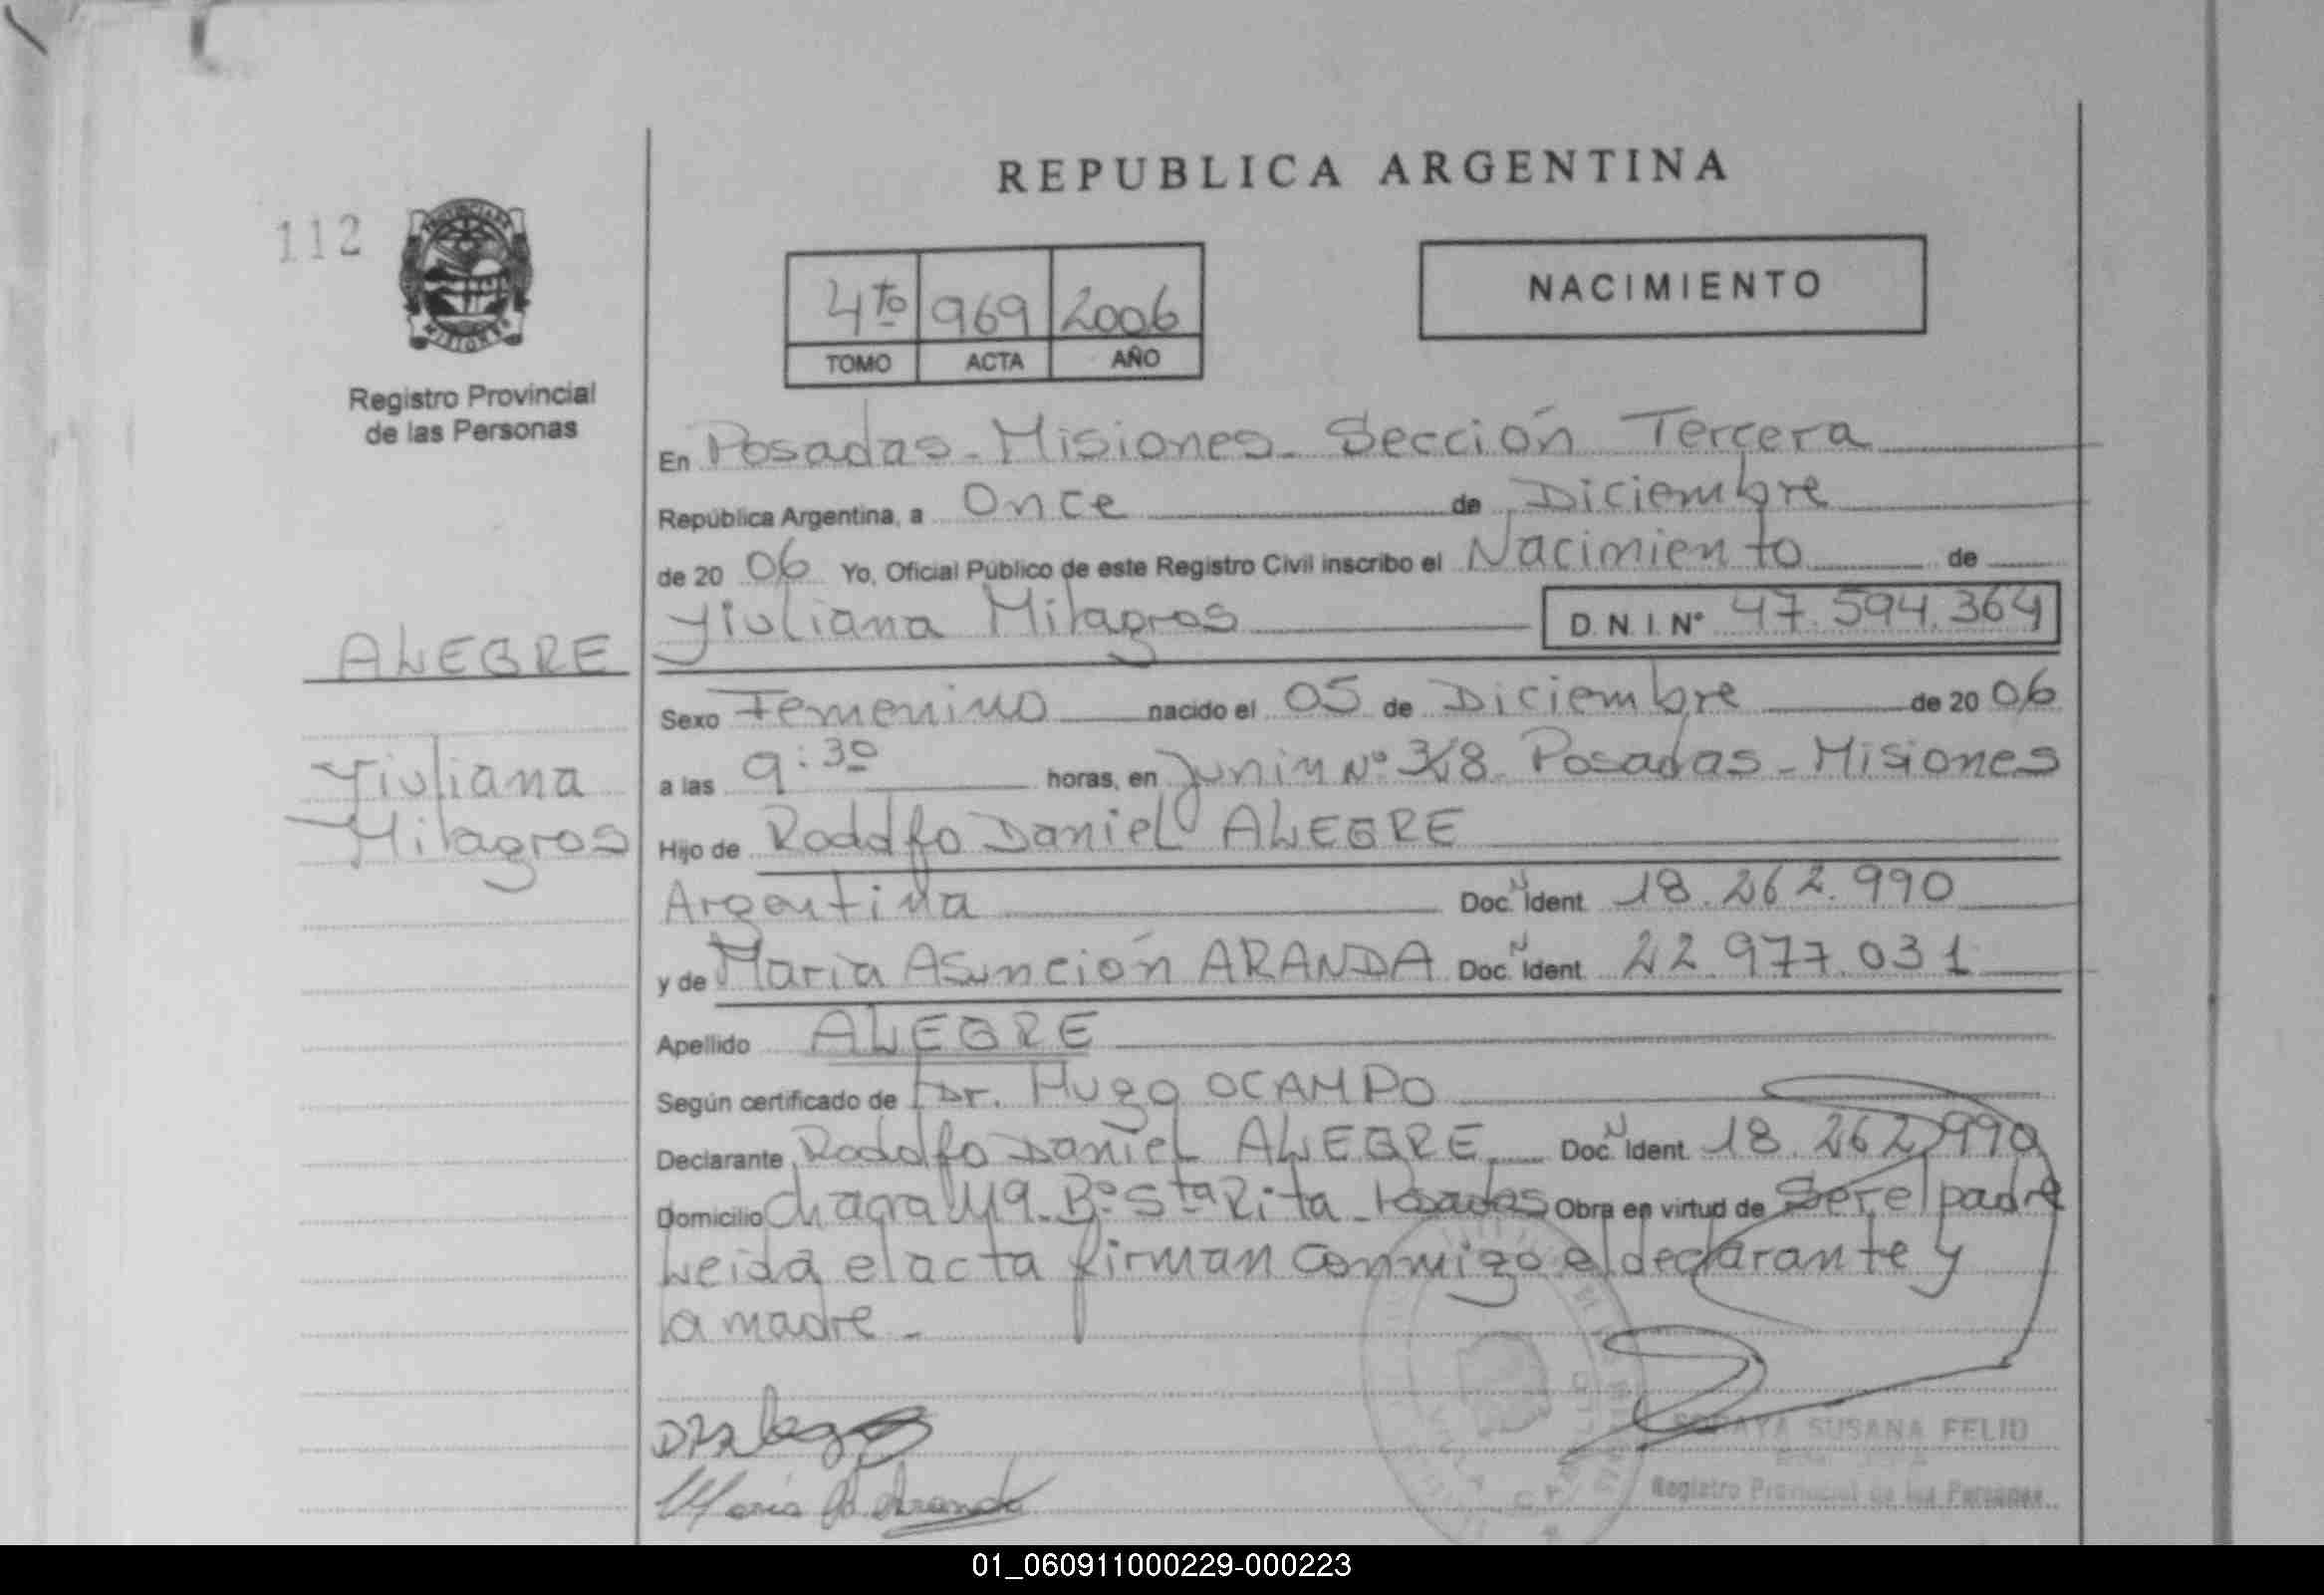 REPUBLICA ARGENTINA
112
NACIMIENTO
4to 969 2006
TOMO ACTA AÑO
Registro Provincial
de las Personas
En Posadas - Misiones - Sección Tercera
República Argentina, a Once de Diciembre
de 20 06 Yo, Oficial Público de este Registro Civil inscribo el Nacimiento de
Yiuliana Milagros D.N.I. Nº 47.594.364
ALEGRE
Yiuliana
Milagros
Sexo Femenino nacido el 05 de Diciembre de 20 06
a las 9:30 horas, en Junin Nº Posadas - Misiones
Hijo de Rodolfo Daniel ALEGRE
Argentina Doc. N Ident. 18.262.990
y de Maria Asunción ARANDA Doc. N Ident. 22.977.031
Apellido ALEGRE
Según certificado de Dr. Hugo OCAMPO
Declarante Rodolfo Daniel ALEGRE Doc. N Ident. 18.262.990
Domicilio Chacra 119 - Bº Sta Rita - Posadas Obra en virtud de Ser el padre
Leida el acta firman conmigo el declarante y
la madre -
Maria A. Aranda
SORAYA SUSANA FELIU
Registro Provincial de las Personas
01_060911000229-000223